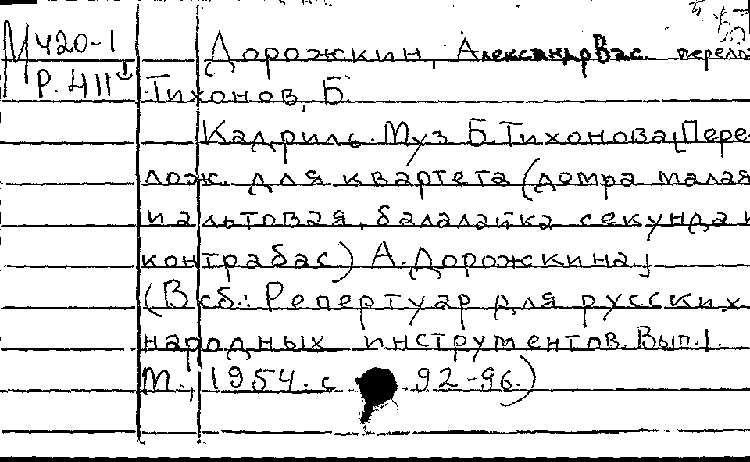 М420-1 Дорожкин, Александр Вас. перелож
Р.411 Тихонов, Б.
Кадриль. Муз Б. Тихонова [Пере-
лож. для квартета (домра малая
и альтовая, балалайка секунда и
контрабас) А. Дорожкина]
(В сб.: Репертуар для русских
народных инструментов. Вып.1.
М., 1954. с 92-96.)